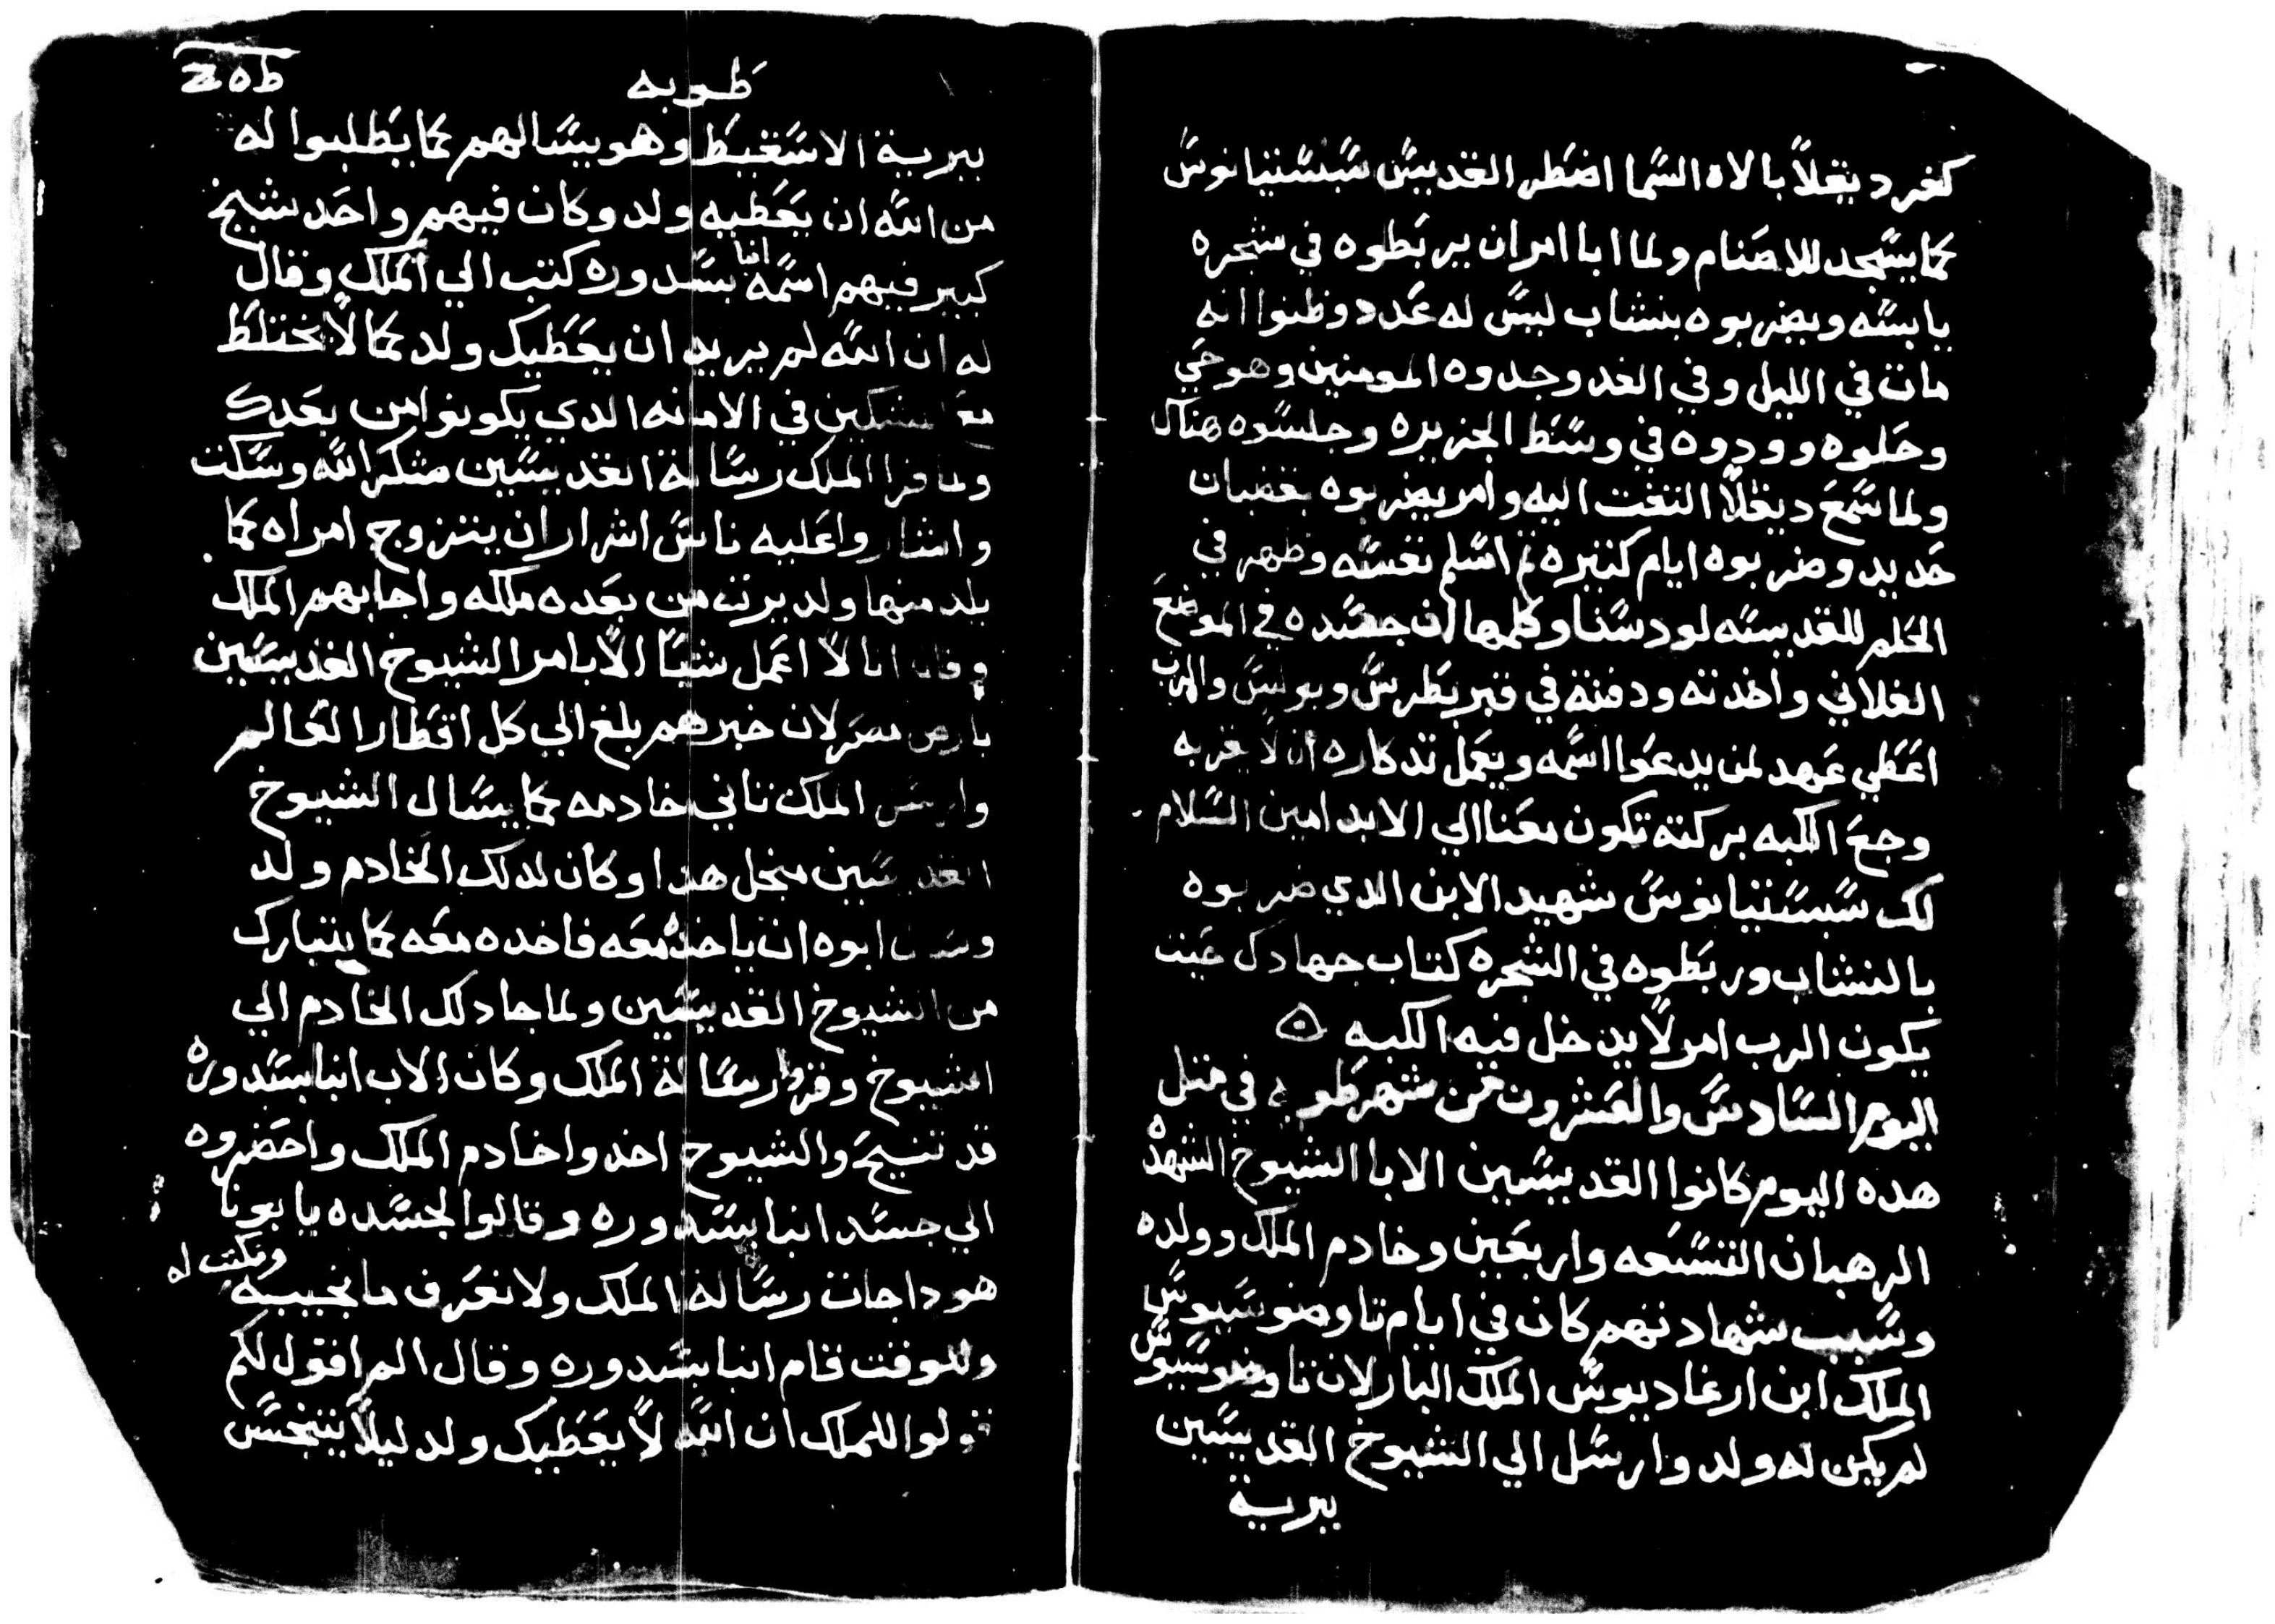 كفر ديقلاً بالاه السما اضطر القديس سبستيانوس
كما يسجد للاصنام ولما ابا امر ان يربطوه في شجره
يابسه ويضربوه بنشاب ليس له عدد وظنوا انه
مات في الليل وفي الغد وجدوه المومنين وهو حي
وحملوه وودوه في وسط الجزيره وجلسوه هناك
ولما سمع ديقلاً التفت اليه وامر يضربوه بقضبان
حديد وضربوه ايام كتيره تم اسلم نفسه وظهر في
الحلم للقديسه لودسنا وكلمها ان جسده في الموضع
الفلاني واخدته ودفنته في قبر بطرس وبولس والرب
اعطي عهد لمن يدعوا اسمه ويعمل تدكاره ان لا يقربه
وجع الكبه بركته تكون معنا الي الابد امين السلام
لك سبستيانوس شهيد الابن الدي ضربوه
بالنشاب وربطوه في الشجره كتاب جهادك حيت
يكون الرب امر لا يدخل فيه الكبه
اليوم السادس والعشرون من شهر طوبه في متل
هده اليوم كانوا القديسين الابا الشيوخ الشهدا
الرهبان التسعه واربعين وخادم الملك وولده
وسبب شهادتهم كان في ايام تاوضوسيوس
الملك ابن ارغاديوس الملك البار لان تاوضوسيوس
لم يكن له ولد وارسل الي الشيوخ القديسين
ببرية
طوبه
ببرية الاسقيط وهو يسالهم كما يطلبوا له
من الله ان يعطيه ولد وكان فيهم واحد شيخ
كبير فيهم اسمه انبا بسدوره كتب الي الملك وقال
له ان الله لم يريد ان يعطيك ولد كما لا يختلط
مع المشكين في الامانه الدي يكونوا من بعدك
ولما قرا الملك رسالة القديسين شكر الله وسكت
واشاروا عليه ناس اشرار ان يتزوج امراه كما
يلد منها ولد يرت من بعده ملكه واجابهم الملك
وقال انا لا اعمل شياً الا بامر الشيوخ القديسين
بارض مصر لان خبرهم بلغ الي كل اقطار العالم
وارسل الملك تاني خادمه كما يسال الشيوخ
القديسين منجل هدا وكان لدلك الخادم ولد
وسال ابوه ان ياخده معه فاخده معه كما يتبارك
من الشيوخ القديسين ولما جا دلك الخادم الي
الشيوخ وقروا رسالة الملك وكان الاب انبا بسدوره
قد تنيح والشيوخ اخدوا خادم الملك واحضروه
الي جسد انبا بسدوره وقالوا لجسده يا بونا
هودا جات رسالة الملك ولا نعرف ما نجيبه ونكتب له
وللوقت قام انبا بسدوره وقال الم اقول لكم
قولوا للملك ان الله لا يعطيك ولد ليلا يتنجس